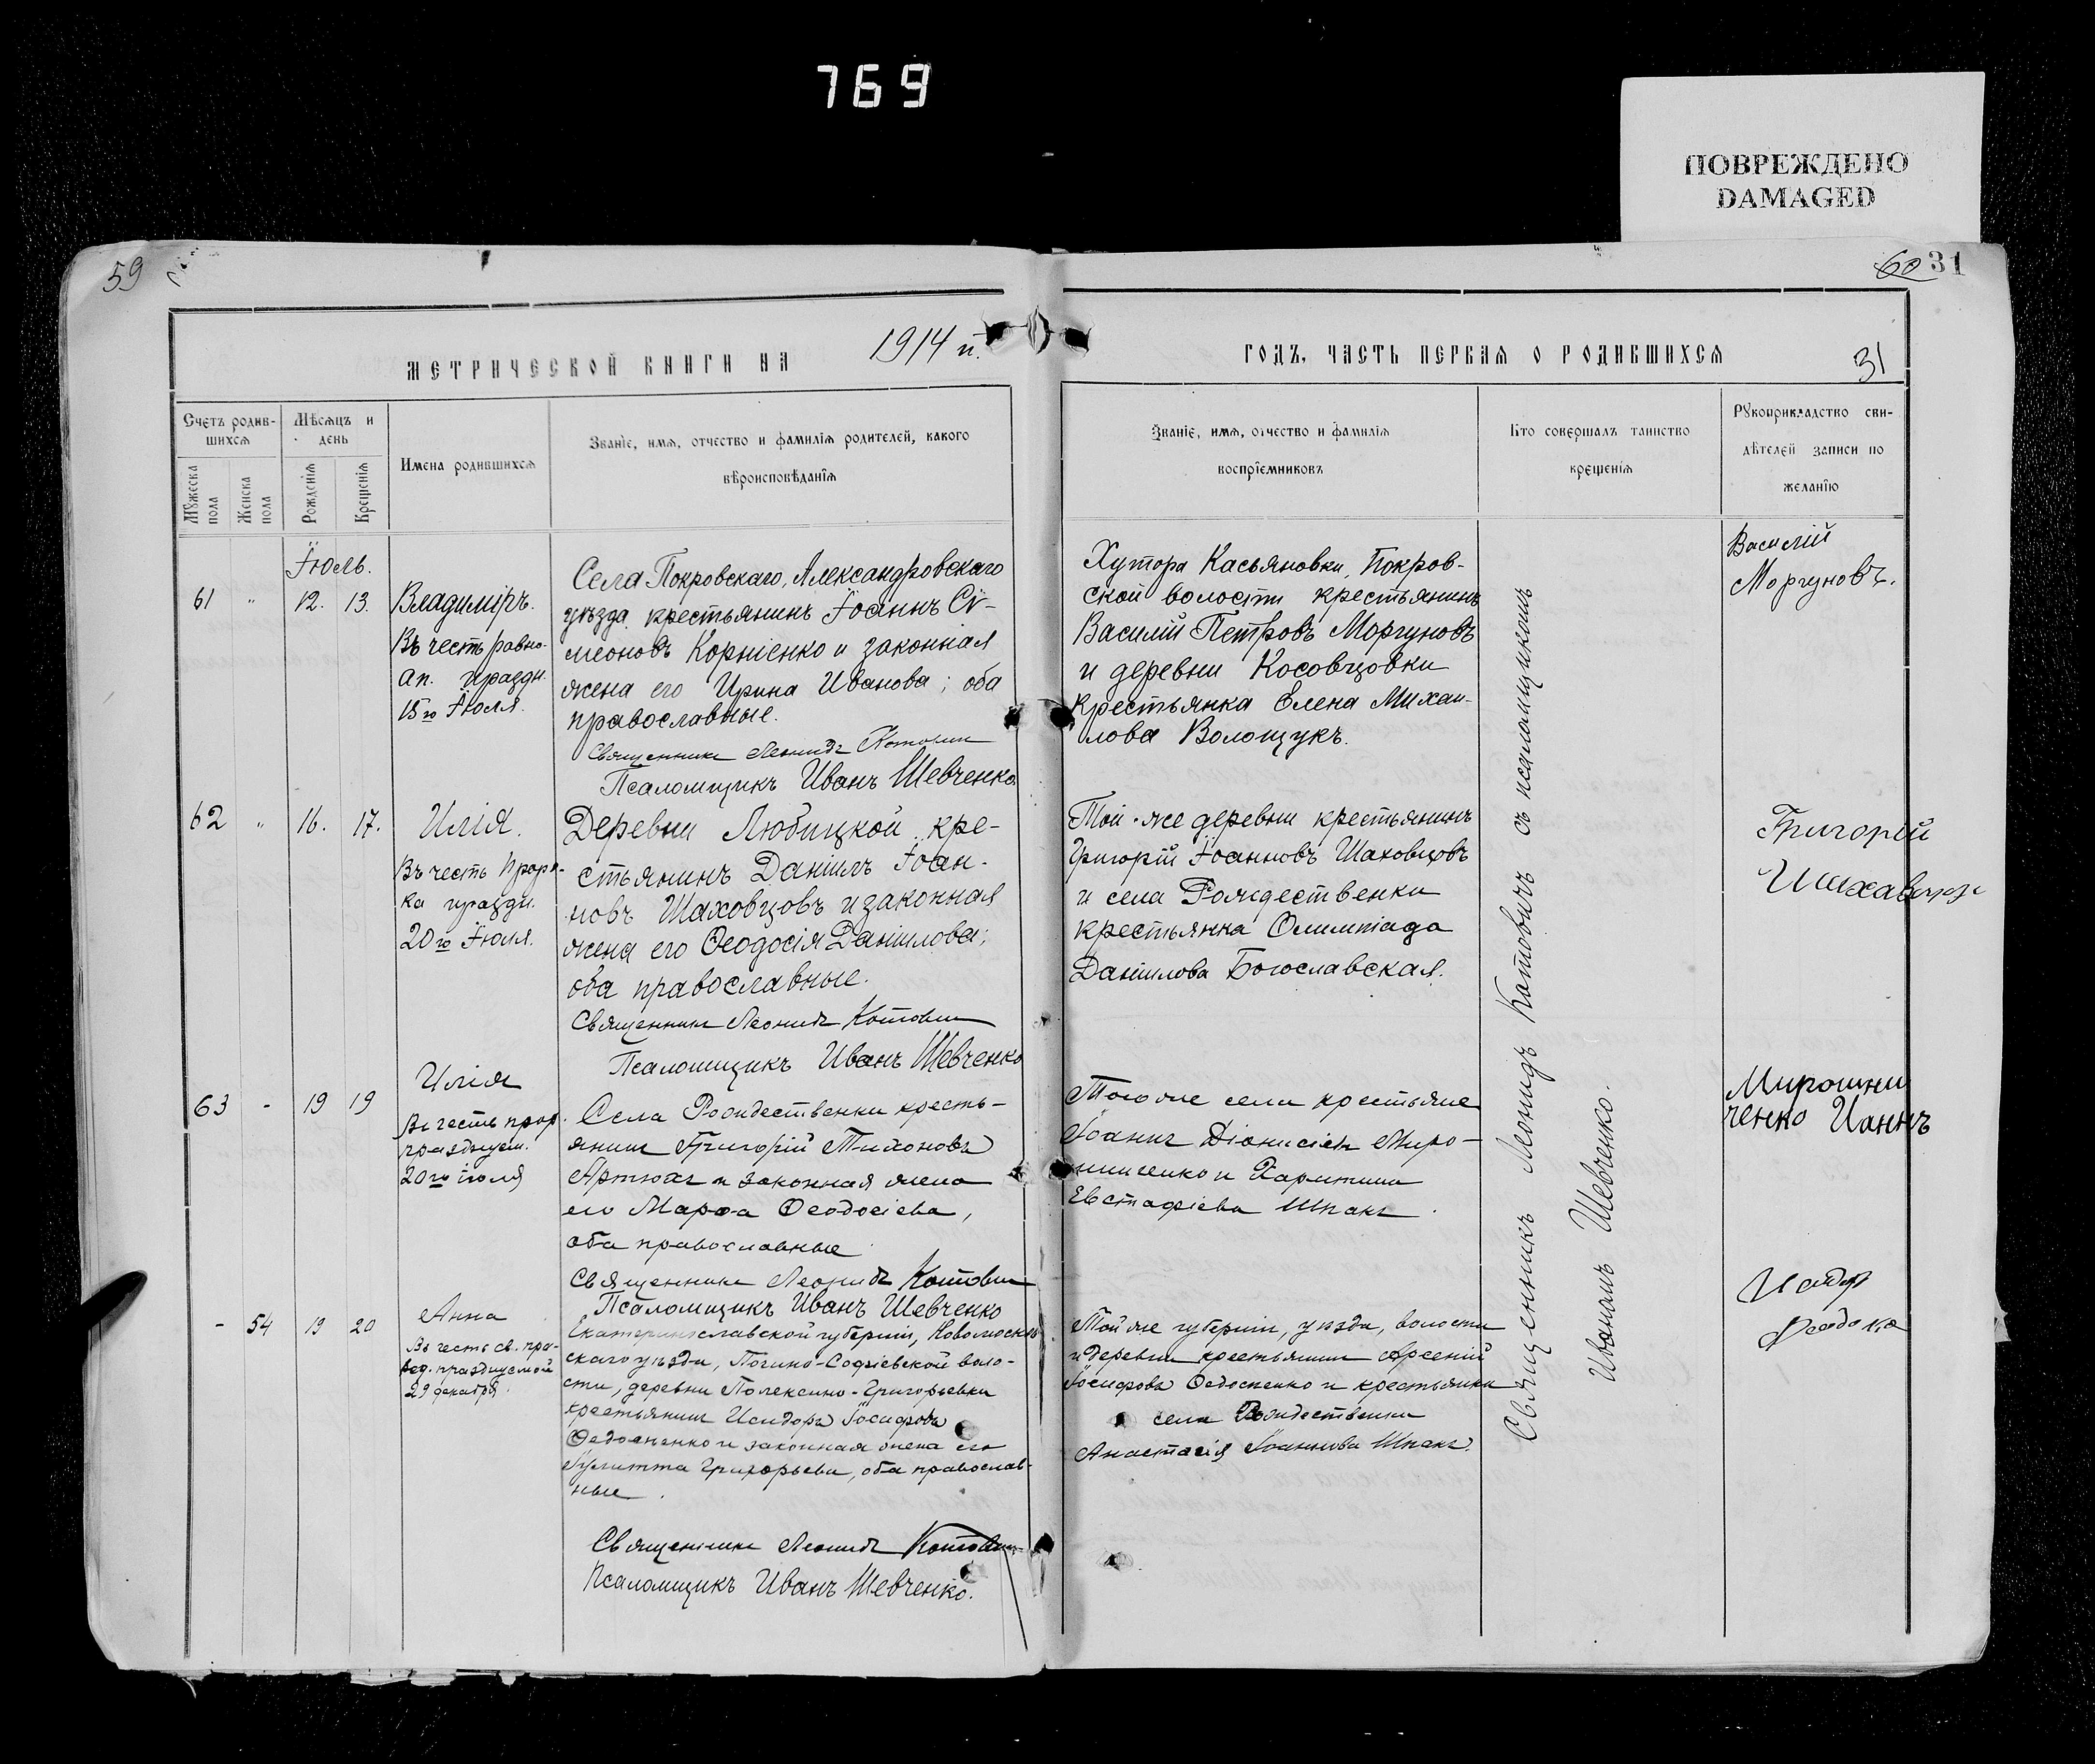 769
ПОВРЕЖДЕНО
DAMAGED
59
60 31
МЕТРИЧЕСКОЙ КНИГИ НА 1914 й.
ГОДЪ, ЧАСТЬ ПЕРВАЯ О РОДИВШИХСЯ
31
Счетъ родив-
шихся
Мужеска пола
Женска пола
Мѣсяцъ и
день
Рожденія
Крещенія
Имена родившихся
Званіе, имя, отчество и фамилія родителей, какого
вѣроисповѣданія
Званіе, имя, отчество и фамилія
воспріемниковъ
Кто совершалъ таинство
крещенія
Рукоприкладство сви-
дѣтелей записи по
желанію
Іюль.
61 " 12. 13.
Владиміръ.
Въ честь равно-
ап. праздн.
15го Іюля.
Села Покровскаго, Александровскаго
уѣзда крестьянинъ Іоаннъ Сѵ-
меоновъ Корніенко и законная
жена его Ирина Иванова; оба
православные.
Священникъ Леонидъ Котовичъ
Псаломщикъ Иванъ Шевченко
Хутора Касьяновки, Покров-
ской волости крестьянинъ
Василій Петровъ Моргуновъ
и деревни Косовцовки
крестьянка Елена Михаи-
лова Волощукъ.
Василій
Моргуновъ.
62 " 16. 17.
Илія.
Въ честь Проро-
ка праздн.
20го Іюля.
Деревни Любицкой кре-
стьянинъ Даніилъ Іоан-
новъ Шаховцовъ и законная
жена его Ѳеодосія Даніилова;
оба православные.
Священникъ Леонидъ Котовичъ
Псаломщикъ Иванъ Шевченко
Той-же деревни крестьянинъ
Григорій Іоанновъ Шаховцовъ
и села Рождественки
крестьянка Олимпіада
Даніилова Богославская.
Григорій
63 - 19 19
Илія
Въ честь прор.
празднуем.
20го іюля
Села Рождественки кресть-
янинъ Григорій Тихоновъ
Артюхъ и законная жена
его Марѳа Ѳеодосіева,
оба православные
Священникъ Леонидъ Котовичъ
Псаломщикъ Иванъ Шевченко
Того же села крестьяне
Іоаннъ Діонисіевъ Миро-
шниченко и Харитина
Евстафіева Шпакъ.
Мирошни
ченко Ианнъ
- 54 19 20
Анна
Въ честь св. пра-
вед. празднуемой
29 декабря.
Екатеринославской губерніи, Новомосков-
скаго уѣзда, Попино-Софіевской воло-
сти, деревни Полексино-Григорьевки
крестьянинъ Исидоръ Іосифовъ
Ѳедосѣенко и законная жена его
Іулитта Григорьева, оба православ-
ные.
Священникъ Леонидъ Котовичъ
Псаломщикъ Иванъ Шевченко.
Той же губерніи, уѣзда, волости
и деревни крестьянинъ Арсеній
Іосифовъ Ѳедосѣенко и крестьянка
села Рождественки
Анастасія Іоаннова Шпакъ.
Священникъ Леонидъ Котовичъ съ псаломщикомъ
Иваномъ Шевченко.